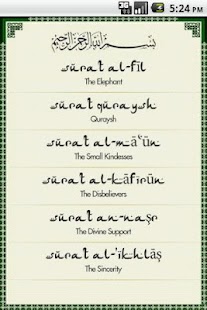 5:24 PM
بسم الله الرحمن الرحيم
sūrat al-fīl
The Elephant
sūrat quraysh
Quraysh
sūrat al-mā'ūn
The Small Kindesses
sūrat al-kāfirūn
The Disbelievers
sūrat an-naṣr
The Divine Support
sūrat al-'ikhlāṣ
The Sincerity